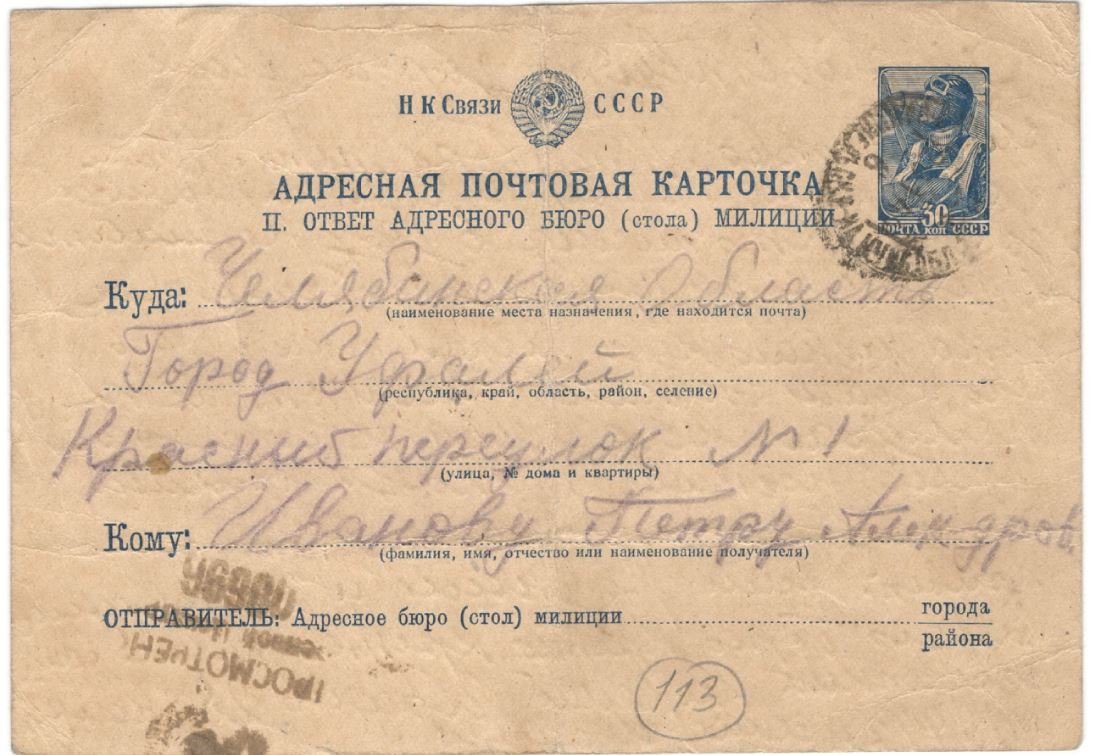 НК Связи СССР
АДРЕСНАЯ ПОЧТОВАЯ КАРТОЧКА
П. ОТВЕТ АДРЕСНОГО БЮРО (стола) МИЛИЦИИ
30
ПОЧТА КОП СССР
Куда: Челябинская Область
(наименование места назначения, где находится почта)
Город Уфалей
(республика, край, область, район, селение)
Красный переулок N 1
(улица, № дома и квартиры)
Кому: Иванову Петру Алек дров.
(фамилия, имя, отчество или наименование получателя)
ОТПРАВИТЕЛЬ: Адресное бюро (стол) милиции города
района
ПРОСМОТРЕНО
113